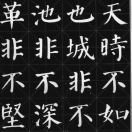 天時不如
也城非不
池非不深
革非不堅